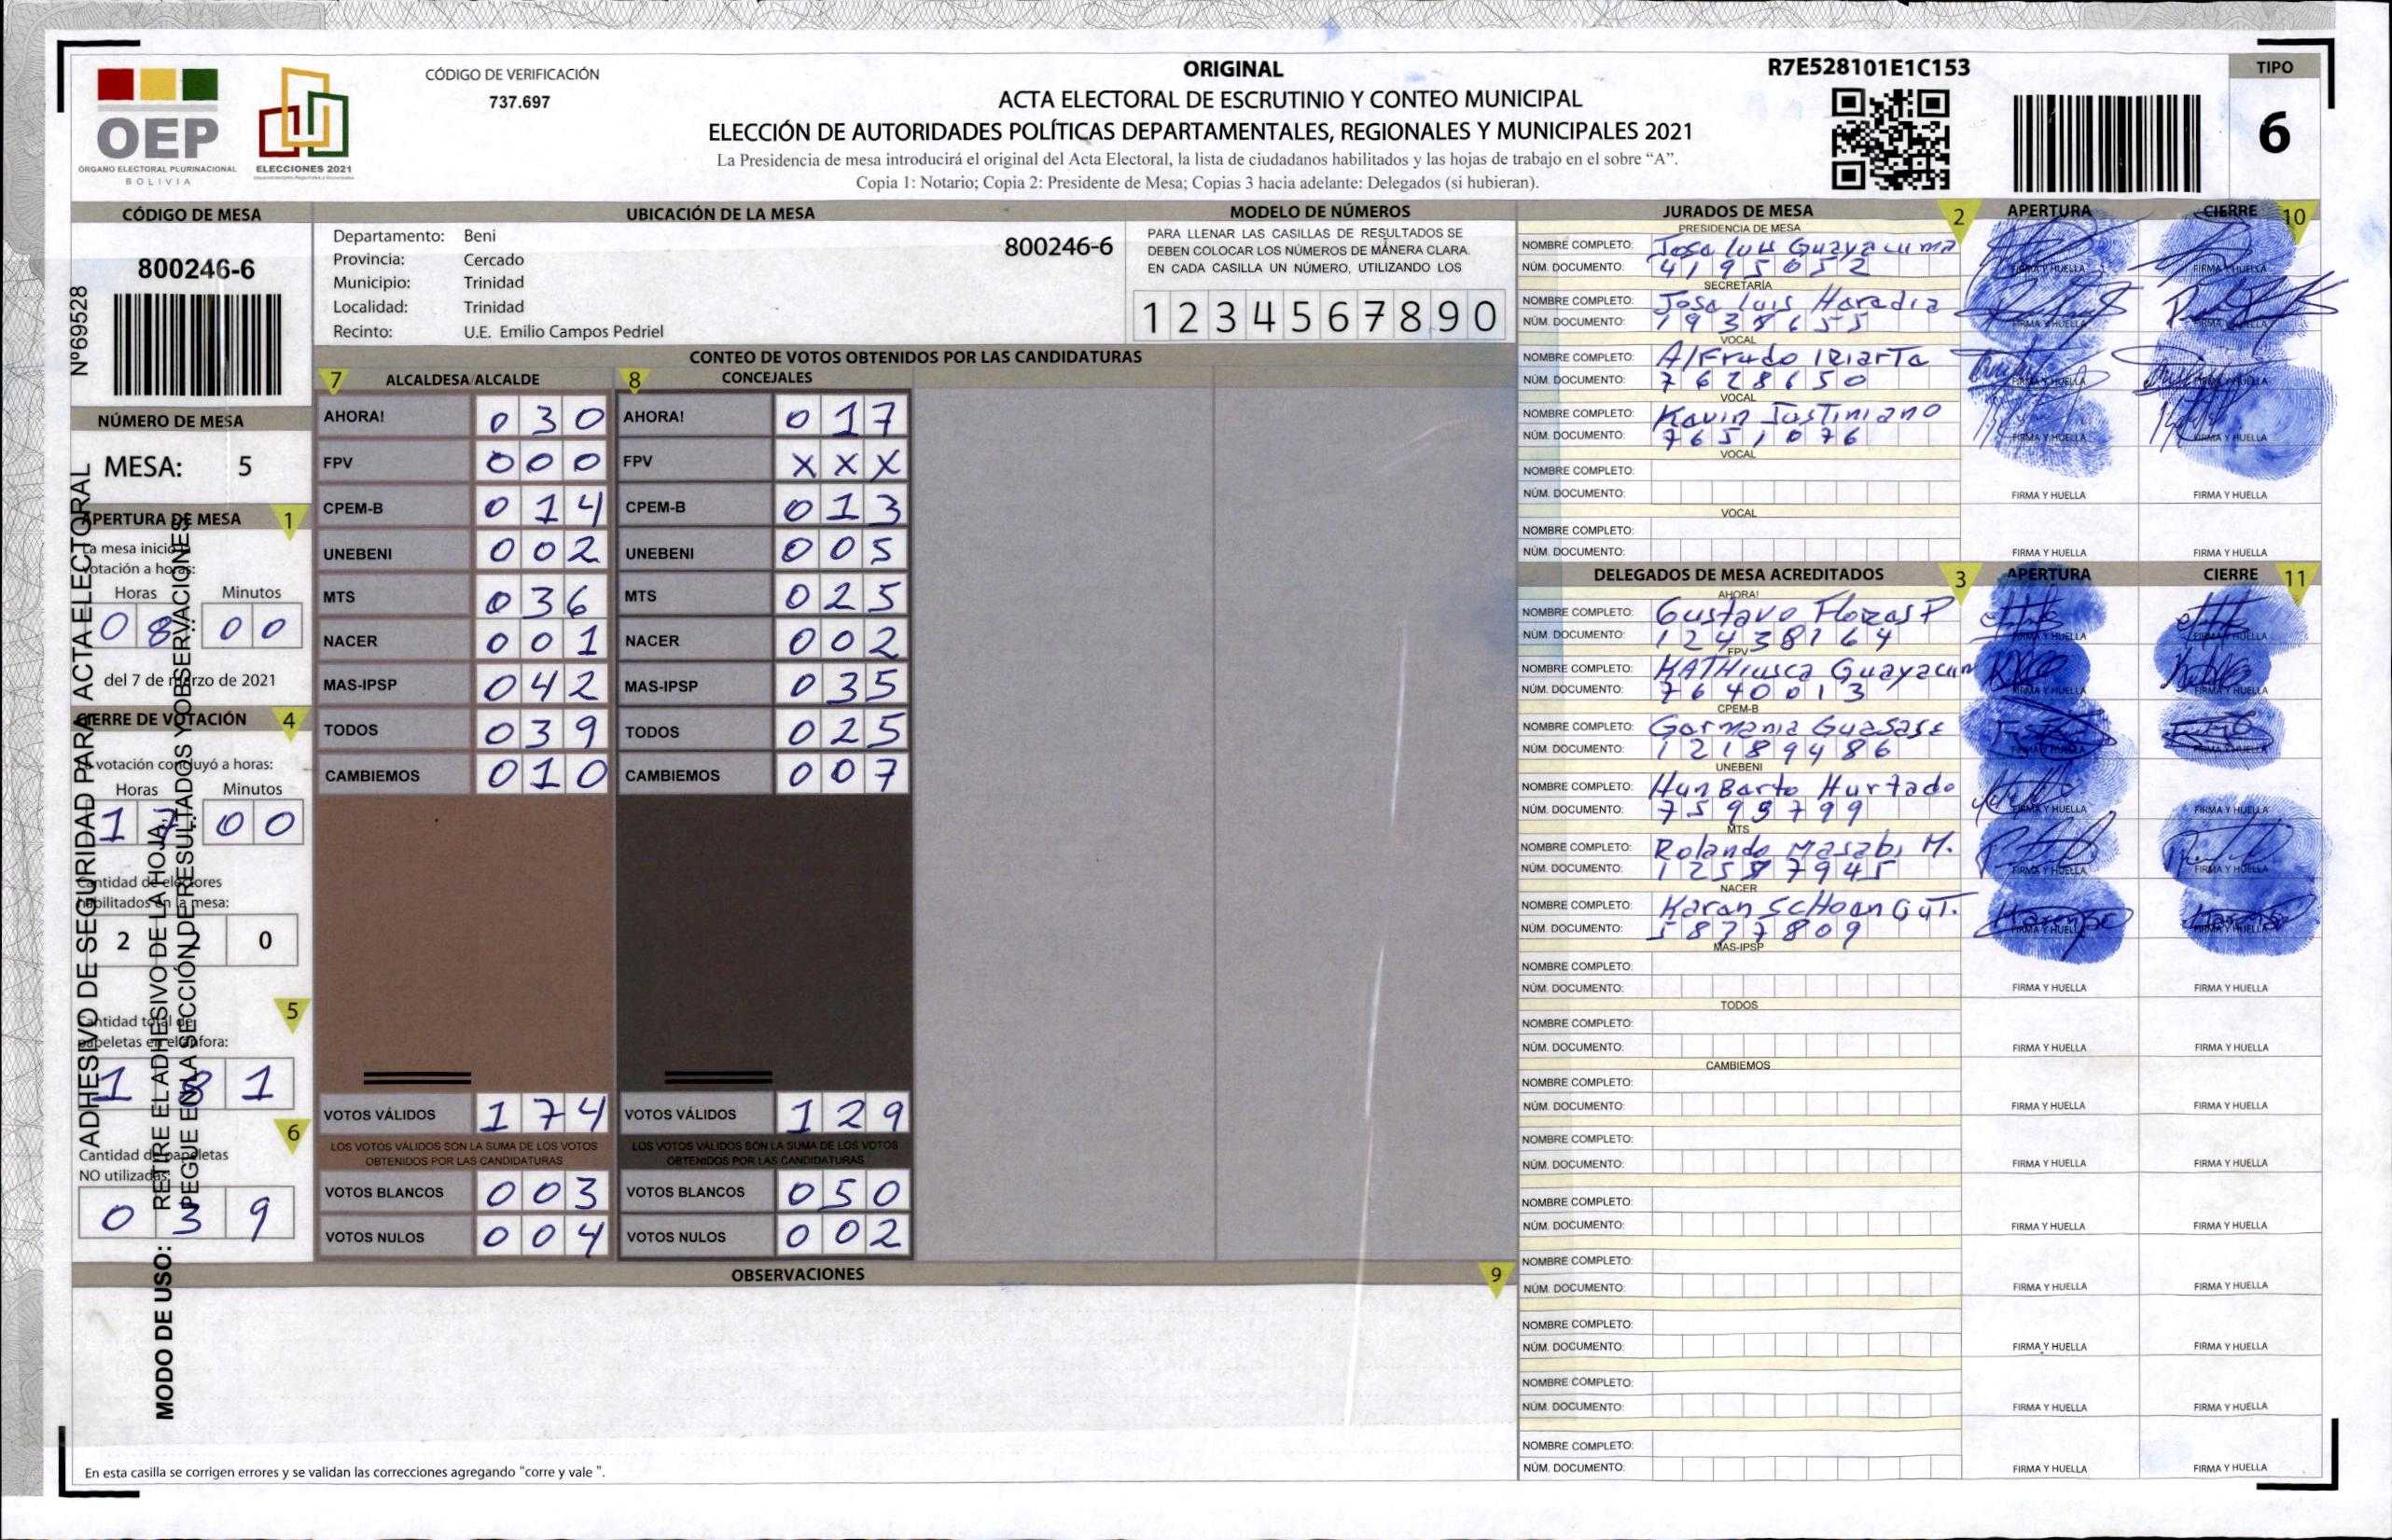 OEP
ÓRGANO ELECTORAL PLURINACIONAL
BOLIVIA
ELECCIONES 2021
CÓDIGO DE VERIFICACIÓN
737.697
ORIGINAL
ACTA ELECTORAL DE ESCRUTINIO Y CONTEO MUNICIPAL
ELECCIÓN DE AUTORIDADES POLÍTICAS DEPARTAMENTALES, REGIONALES Y MUNICIPALES 2021
La Presidencia de mesa introducirá el original del Acta Electoral, la lista de ciudadanos habilitados y las hojas de trabajo en el sobre “A”.
Copia 1: Notario; Copia 2: Presidente de Mesa; Copias 3 hacia adelante: Delegados (si hubieran).
R7E528101E1C153
TIPO
6
CÓDIGO DE MESA
800246-6
Nº69528
NÚMERO DE MESA
MESA: 5
APERTURA DE MESA 1
La mesa inició
votación a horas:
Horas Minutos
08 00
del 7 de marzo de 2021
CIERRE DE VOTACIÓN 4
La votación concluyó a horas:
Horas Minutos
17 00
Cantidad de electores
habilitados en la mesa:
2 0
5
Cantidad total de
papeletas en el ánfora:
1 8 1
6
Cantidad de papeletas
NO utilizadas
0 3 9
ADHESIVO DE SEGURIDAD PARA ACTA ELECTORAL
MODO DE USO: RETIRE EL ADHESIVO DE LA HOJA.
PEGUE EN LA SECCIÓN DE RESULTADOS Y OBSERVACIONES
UBICACIÓN DE LA MESA
Departamento: Beni
Provincia: Cercado
Municipio: Trinidad
Localidad: Trinidad
Recinto: U.E. Emilio Campos Pedriel
800246-6
MODELO DE NÚMEROS
PARA LLENAR LAS CASILLAS DE RESULTADOS SE
DEBEN COLOCAR LOS NÚMEROS DE MANERA CLARA.
EN CADA CASILLA UN NÚMERO, UTILIZANDO LOS
1 2 3 4 5 6 7 8 9 0
CONTEO DE VOTOS OBTENIDOS POR LAS CANDIDATURAS
7 ALCALDESA/ALCALDE 8 CONCEJALES
AHORA! 030 AHORA! 017
FPV 000 FPV XXX
CPEM-B 014 CPEM-B 013
UNEBENI 002 UNEBENI 005
MTS 036 MTS 025
NACER 001 NACER 002
MAS-IPSP 042 MAS-IPSP 035
TODOS 039 TODOS 025
CAMBIEMOS 010 CAMBIEMOS 007
VOTOS VÁLIDOS 174 VOTOS VÁLIDOS 129
LOS VOTOS VÁLIDOS SON LA SUMA DE LOS VOTOS LOS VOTOS VÁLIDOS SON LA SUMA DE LOS VOTOS
OBTENIDOS POR LAS CANDIDATURAS OBTENIDOS POR LAS CANDIDATURAS
VOTOS BLANCOS 003 VOTOS BLANCOS 050
VOTOS NULOS 004 VOTOS NULOS 002
OBSERVACIONES 9
En esta casilla se corrigen errores y se validan las correcciones agregando "corre y vale ".
JURADOS DE MESA 2 APERTURA CIERRE 10
PRESIDENCIA DE MESA
NOMBRE COMPLETO: Jose Luis Guayacuma
NÚM. DOCUMENTO: 4195052 FIRMA Y HUELLA FIRMA Y HUELLA
SECRETARÍA
NOMBRE COMPLETO: Jose Luis Haradia
NÚM. DOCUMENTO: 1938655 FIRMA Y HUELLA FIRMA Y HUELLA
VOCAL
NOMBRE COMPLETO: Alfredo IRiarTe
NÚM. DOCUMENTO: 7628650 FIRMA Y HUELLA FIRMA Y HUELLA
VOCAL
NOMBRE COMPLETO: Kavin Justiniano
NÚM. DOCUMENTO: 7651076 FIRMA Y HUELLA FIRMA Y HUELLA
VOCAL
NOMBRE COMPLETO:
NÚM. DOCUMENTO: FIRMA Y HUELLA FIRMA Y HUELLA
VOCAL
NOMBRE COMPLETO:
NÚM. DOCUMENTO: FIRMA Y HUELLA FIRMA Y HUELLA
DELEGADOS DE MESA ACREDITADOS 3 APERTURA CIERRE 11
AHORA!
NOMBRE COMPLETO: Gustavo Flores P
NÚM. DOCUMENTO: 12438164 FIRMA Y HUELLA FIRMA Y HUELLA
FPV
NOMBRE COMPLETO: KATHiusca Guayacun
NÚM. DOCUMENTO: 7640013 FIRMA Y HUELLA FIRMA Y HUELLA
CPEM-B
NOMBRE COMPLETO: Germania Guasase
NÚM. DOCUMENTO: 12189486 FIRMA Y HUELLA FIRMA Y HUELLA
UNEBENI
NOMBRE COMPLETO: HunBarto Hurtado
NÚM. DOCUMENTO: 7593799 FIRMA Y HUELLA FIRMA Y HUELLA
MTS
NOMBRE COMPLETO: Rolando Masabi M.
NÚM. DOCUMENTO: 12587945 FIRMA Y HUELLA FIRMA Y HUELLA
NACER
NOMBRE COMPLETO: Karan ScHoan GuT.
NÚM. DOCUMENTO: 5877809 FIRMA Y HUELLA FIRMA Y HUELLA
MAS-IPSP
NOMBRE COMPLETO:
NÚM. DOCUMENTO: FIRMA Y HUELLA FIRMA Y HUELLA
TODOS
NOMBRE COMPLETO:
NÚM. DOCUMENTO: FIRMA Y HUELLA FIRMA Y HUELLA
CAMBIEMOS
NOMBRE COMPLETO:
NÚM. DOCUMENTO: FIRMA Y HUELLA FIRMA Y HUELLA
NOMBRE COMPLETO:
NÚM. DOCUMENTO: FIRMA Y HUELLA FIRMA Y HUELLA
NOMBRE COMPLETO:
NÚM. DOCUMENTO: FIRMA Y HUELLA FIRMA Y HUELLA
NOMBRE COMPLETO:
NÚM. DOCUMENTO: FIRMA Y HUELLA FIRMA Y HUELLA
NOMBRE COMPLETO:
NÚM. DOCUMENTO: FIRMA Y HUELLA FIRMA Y HUELLA
NOMBRE COMPLETO:
NÚM. DOCUMENTO: FIRMA Y HUELLA FIRMA Y HUELLA
NOMBRE COMPLETO:
NÚM. DOCUMENTO: FIRMA Y HUELLA FIRMA Y HUELLA